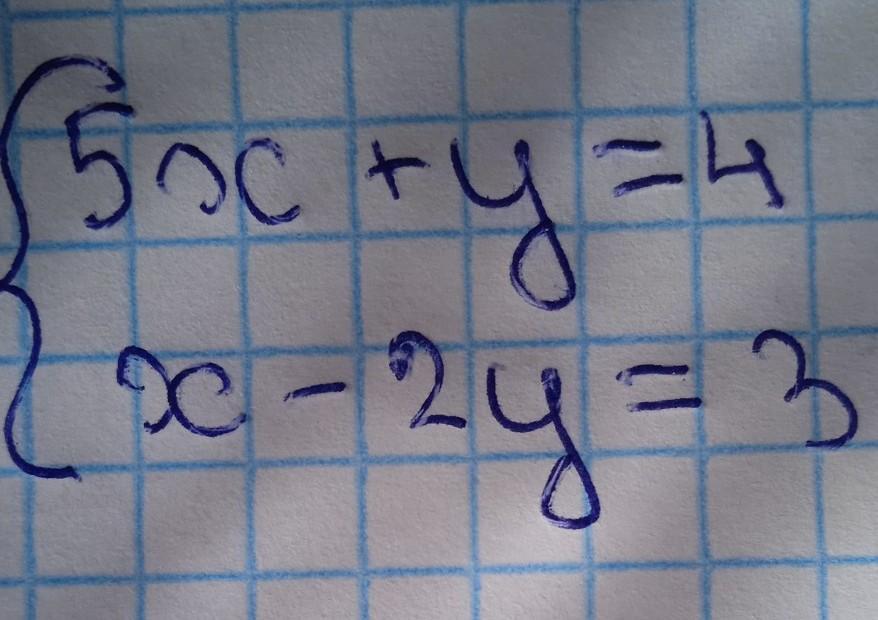 5x + y = 4
x - 2y = 3